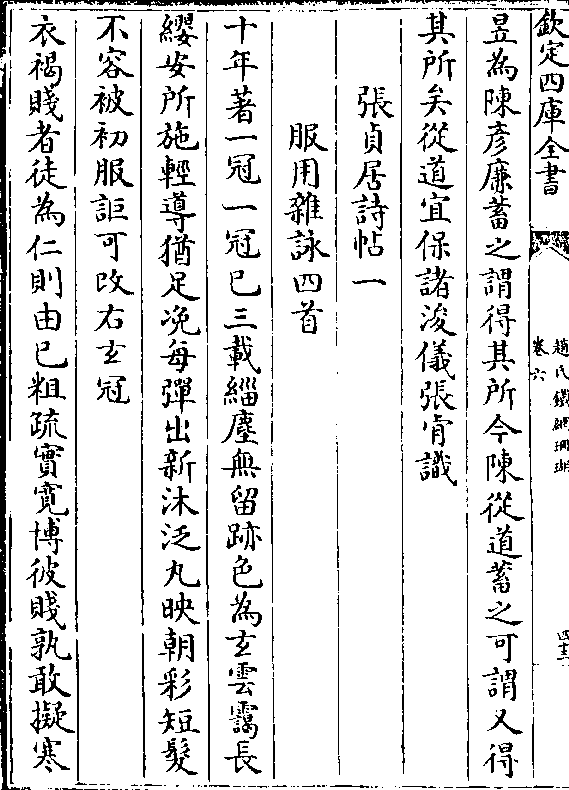 欽定四庫全書
趙氏鐵網珊瑚
卷六
四十三
昱為陳彦廉蓄之謂得其所今陳從道蓄之可謂又得
其所矣從道宜保諸浚儀張肯識
張貞居詩帖一
服用雜詠四首
十年著一冠一冠巳三載緇塵無留跡色為玄雲靄長
纓安所施輕導猶足浼每彈出新沐泛丸映朝彩短髮
不容被初服詎可改右玄冠
衣褐賤者徒為仁則由巳粗疏實寛博彼賤孰敢擬寒